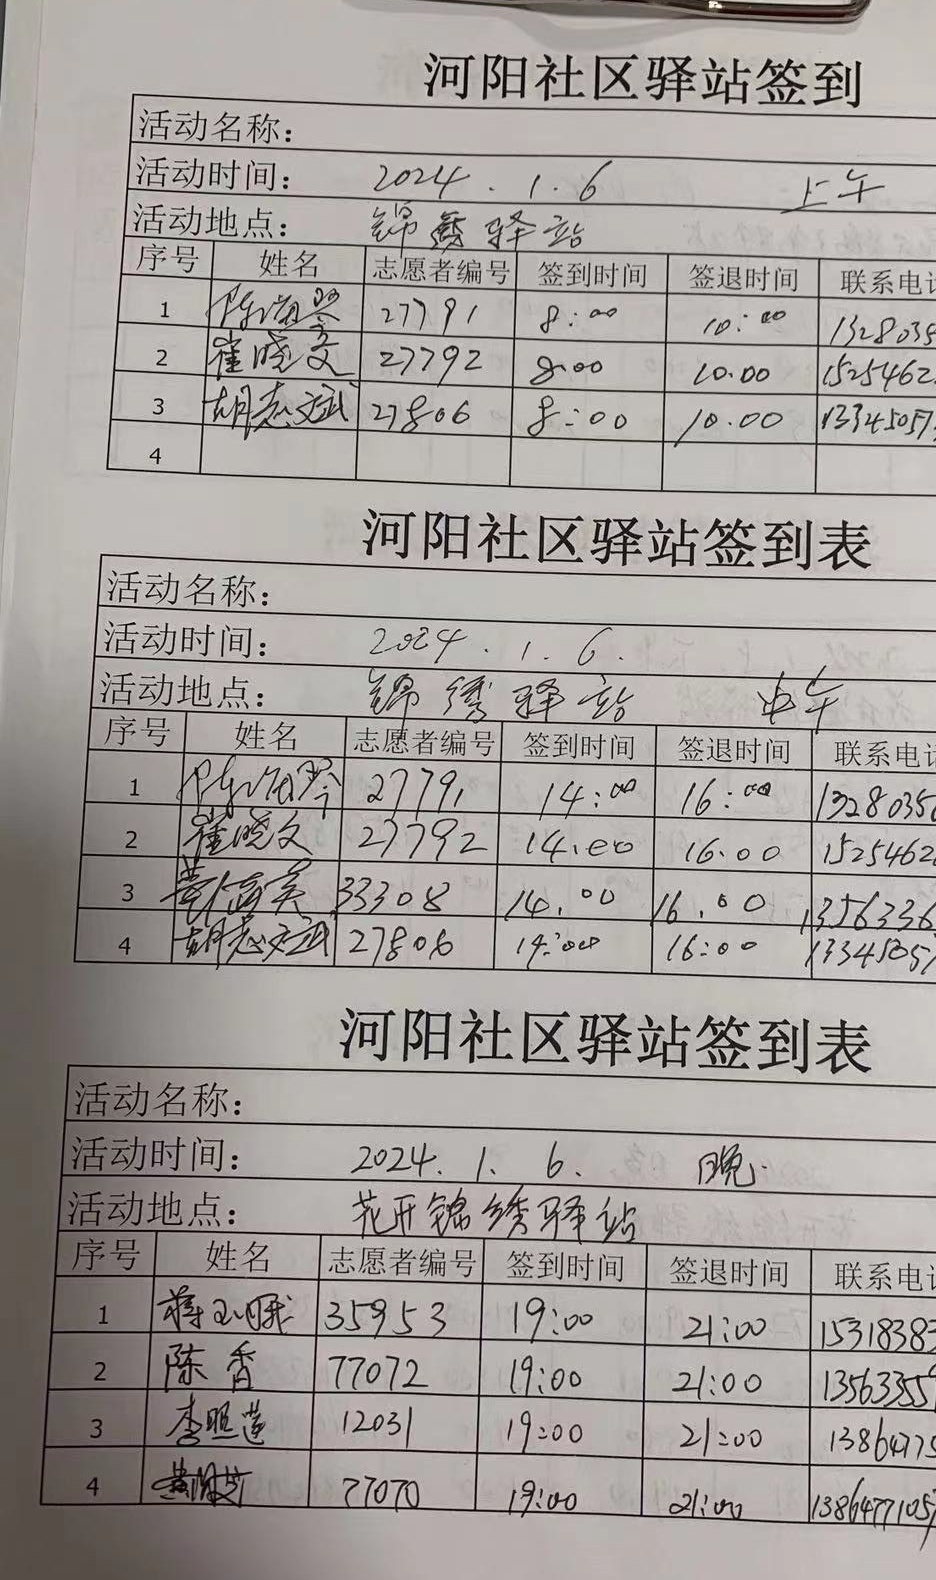 河阳社区驿站签到
活动名称：
活动时间： 2024.1.6 上午
活动地点： 锦秀驿站
序号 姓名 志愿者编号 签到时间 签退时间 联系电话
1 27791 8:00 10:00 1328035
2 崔晓文 27792 8:00 10.00 1525462
3 胡志斌 27806 8:00 10.00 13345057
4
河阳社区驿站签到表
活动名称：
活动时间： 2024.1.6.
活动地点： 锦绣驿站 中午
序号 姓名 志愿者编号 签到时间 签退时间 联系电话
1 27791 14:00 16:00 1328035
2 崔晓文 27792 14.00 16.00 1525462
3 33308 14.00 16.00 1356336
4 胡志斌 27806 14:00 16:00 13345057
河阳社区驿站签到表
活动名称：
活动时间： 2024.1.6. 晚.
活动地点： 花开锦绣驿站
序号 姓名 志愿者编号 签到时间 签退时间 联系电话
1 35953 19:00 21:00 15318383
2 陈香 77072 19:00 21:00 1356355
3 李照莲 12031 19:00 21:00 1386477
4 77070 19:00 21:00 1386477105